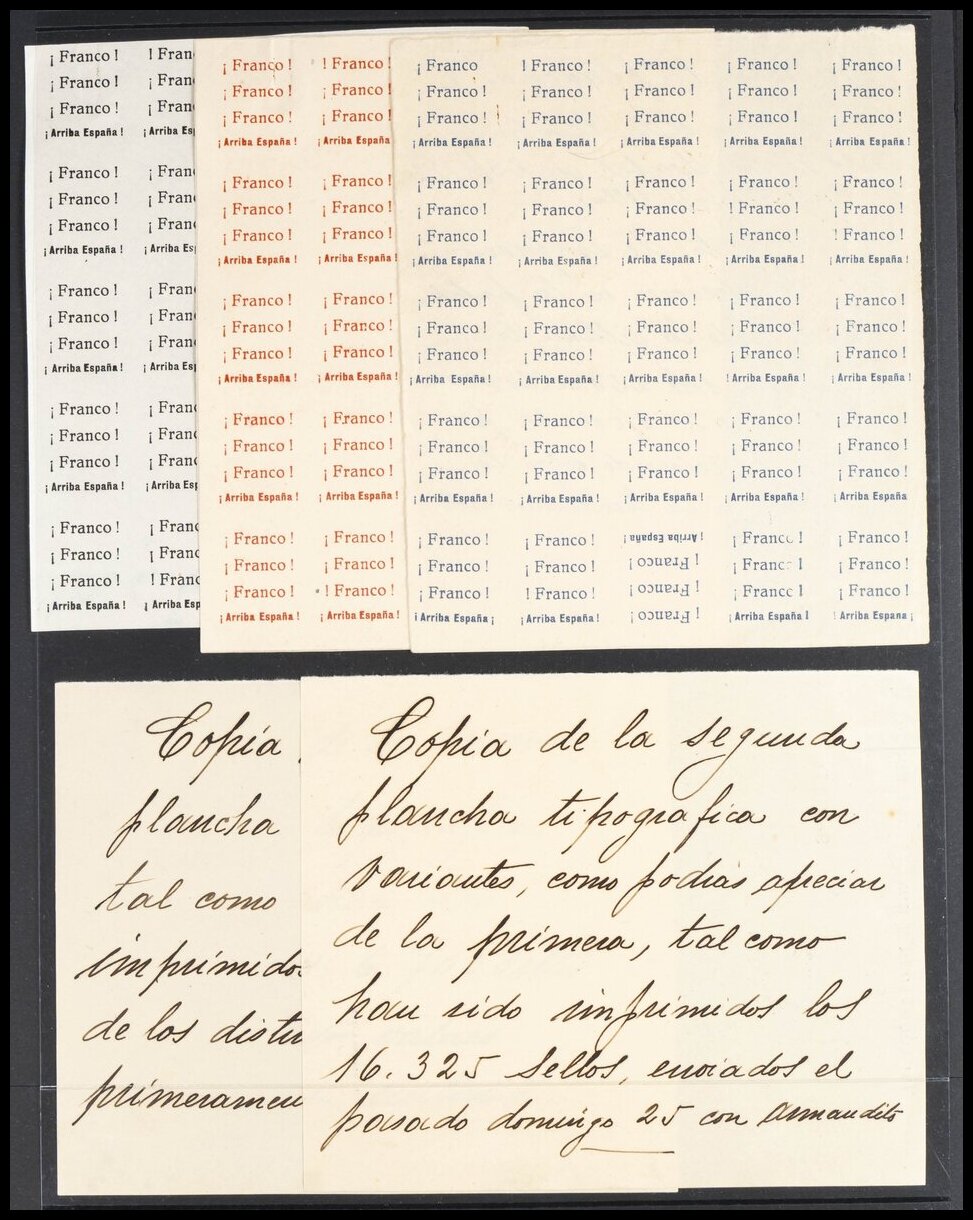 ¡ Franco ! ! Fran
¡ Franco ! ¡ Fran
¡ Franco ! ¡ Fran
¡ Arriba España ! ¡ Arriba Es
¡ Franco ! ¡ Fran
¡ Franco ! ¡ Fran
¡ Franco ! ¡ Fran
¡ Arriba España ! ¡ Arriba Es
¡ Franco ! ¡ Fran
¡ Franco ! ¡ Fran
¡ Franco ! ¡ Fran
¡ Arriba España ! ¡ Arriba Es
¡ Franco ! ¡ Fran
¡ Franco ! ¡ Fran
¡ Franco ! ¡ Fran
¡ Arriba España ! ¡ Arriba Es
¡ Franco ! ¡ Fran
¡ Franco ! ¡ Fran
¡ Franco ! ! Fran
¡ Arriba España ! ¡ Arriba Esp
¡ Franco ! ! Franco !
¡ Franco ! ¡ Franco !
¡ Franco ! ¡ Franco !
¡ Arriba España ! ¡ Arriba España
¡ Franco ! ¡ Franco !
¡ Franco ! ¡ Franco !
¡ Franco ! ¡ Franco !
¡ Arriba España ! ¡ Arriba España !
¡ Franco ! ¡ Franco !
¡ Franco ! ¡ Franco !
¡ Franco ! ¡ Franco !
¡ Arriba España ! ¡ Arriba España !
¡ Franco ! ¡ Franco !
¡ Franco ! ¡ Franco !
¡ Franco ! ¡ Franco !
¡ Arriba España ! ¡ Arriba España !
¡ Franco ! ¡ Franco !
¡ Franco ! ¡ Franco !
¡ Franco ! ! Franco !
¡ Arriba España ! ¡ Arriba España !
¡ Franco ! Franco ! ¡ Franco ! ¡ Franco ! ¡ Franco !
¡ Franco ! ¡ Franco ! ¡ Franco ! ¡ Franco ! ¡ Franco !
¡ Franco ! ¡ Franco ! ¡ Franco ! ¡ Franco ! ¡ Franco !
¡ Arriba España ! ¡ Arriba España ! ¡ Arriba España ! ¡ Arriba España ! ¡ Arriba España !
¡ Franco ! ¡ Franco ! ¡ Franco ! ¡ Franco ! ¡ Franco !
¡ Franco ! ¡ Franco ! ¡ Franco ! ! Franco ! ¡ Franco !
¡ Franco ! ¡ Franco ! ¡ Franco ! ¡ Franco ! ! Franco !
¡ Arriba España ! ¡ Arriba España ! ¡ Arriba España ! ¡ Arriba España ! ¡ Arriba España !
¡ Franco ! ¡ Franco ! ¡ Franco ! ¡ Franco ! ¡ Franco !
¡ Franco ! ¡ Franco ! ¡ Franco ! ¡ Franco ! ¡ Franco !
¡ Franco ! ¡ Franco ! ¡ Franco ! ¡ Franco ! ¡ Franco !
¡ Arriba España ! ¡ Arriba España ! ¡ Arriba España ! ! Arriba España ! ¡ Arriba España !
¡ Franco ! ¡ Franco ! ¡ Franco ! ¡ Franco ! ¡ Franco !
¡ Franco ! ¡ Franco ! ¡ Franco ! ¡ Franco ! ¡ Franco !
¡ Franco ! ¡ Franco ! ¡ Franco ! ¡ Franco ! ¡ Franco !
¡ Arriba España ! ¡ Arriba España ! ¡ Arriba España ! ¡ Arriba España ! ¡ Arriba España
¡ Franco ! ¡ Franco ! ¡ Arriba España ! ¡ Franco ! ¡ Franco !
¡ Franco ! ¡ Franco ! ¡ Franco ! ¡ Franco ! ¡ Franco !
¡ Franco ! ! Franco ! ¡ Franco ! ¡ Franco ! ¡ Franco !
¡ Arriba España ¡ ¡ Arriba España ! ¡ Franco ! ¡ Arriba España ! ! Arriba España ¡
Copia
plancha
tal como
imprimidos
de los distin
primeramen
Copia de la segunda
plancha tipografica con
variantes, como podrás apreciar
de la primera, tal como
han sido imprimidos los
16.325 sellos, enviados el
pasado domingo 25 con Armandito